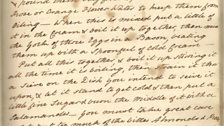 from or Orange Flower Water to keep them from
oiling — then this is mixed put a little of
it in the Cream & boil it up together, then mix
the Yolk of three Eggs in a Bason beating
them up with a Spoonful of Old Cream
Put all this together & boil it up stirring it
all the time it is boiling, then Strain it thro
a Sieve on the Dish you intend to serve it
upon, & let it stand to get cold & then put a
little fine Sugar down the Middle of it with a
Salamander. You must take great care
not to put to much of the bitter Almonds